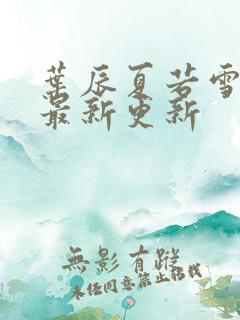 葉辰夏若雪
最新更新
無影有蹤
未经同意禁止转载